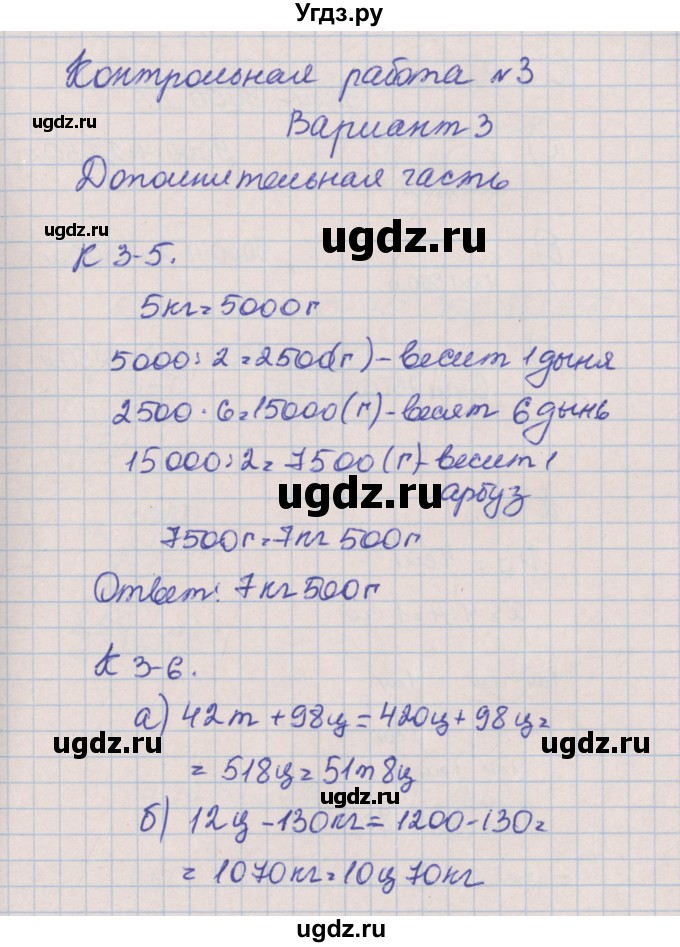 Угдз.ру
Контрольная работа №3
ugdz.ru
Вариант 3
Дополнительная часть
ugdz.ru
ugdz.ru
К 3-5.
5кг=5000г
5000:2=2500(г)-весит 1 дыня
2500·6=15000(г)-весят 6 дынь
15000:2=7500(г)-весит 1
ugdz.ru
арбуз
7500г=7кг 500г
Ответ: 7кг 500г
К 3-6.
а) 42т+98ц=420ц+98ц=
ugdz.ru
ugdz.ru
=518ц=51т8ц
ugdz.ru
б) 12ц-130кг=1200-130=
=1070кг=10ц70кг
ugdz.ru